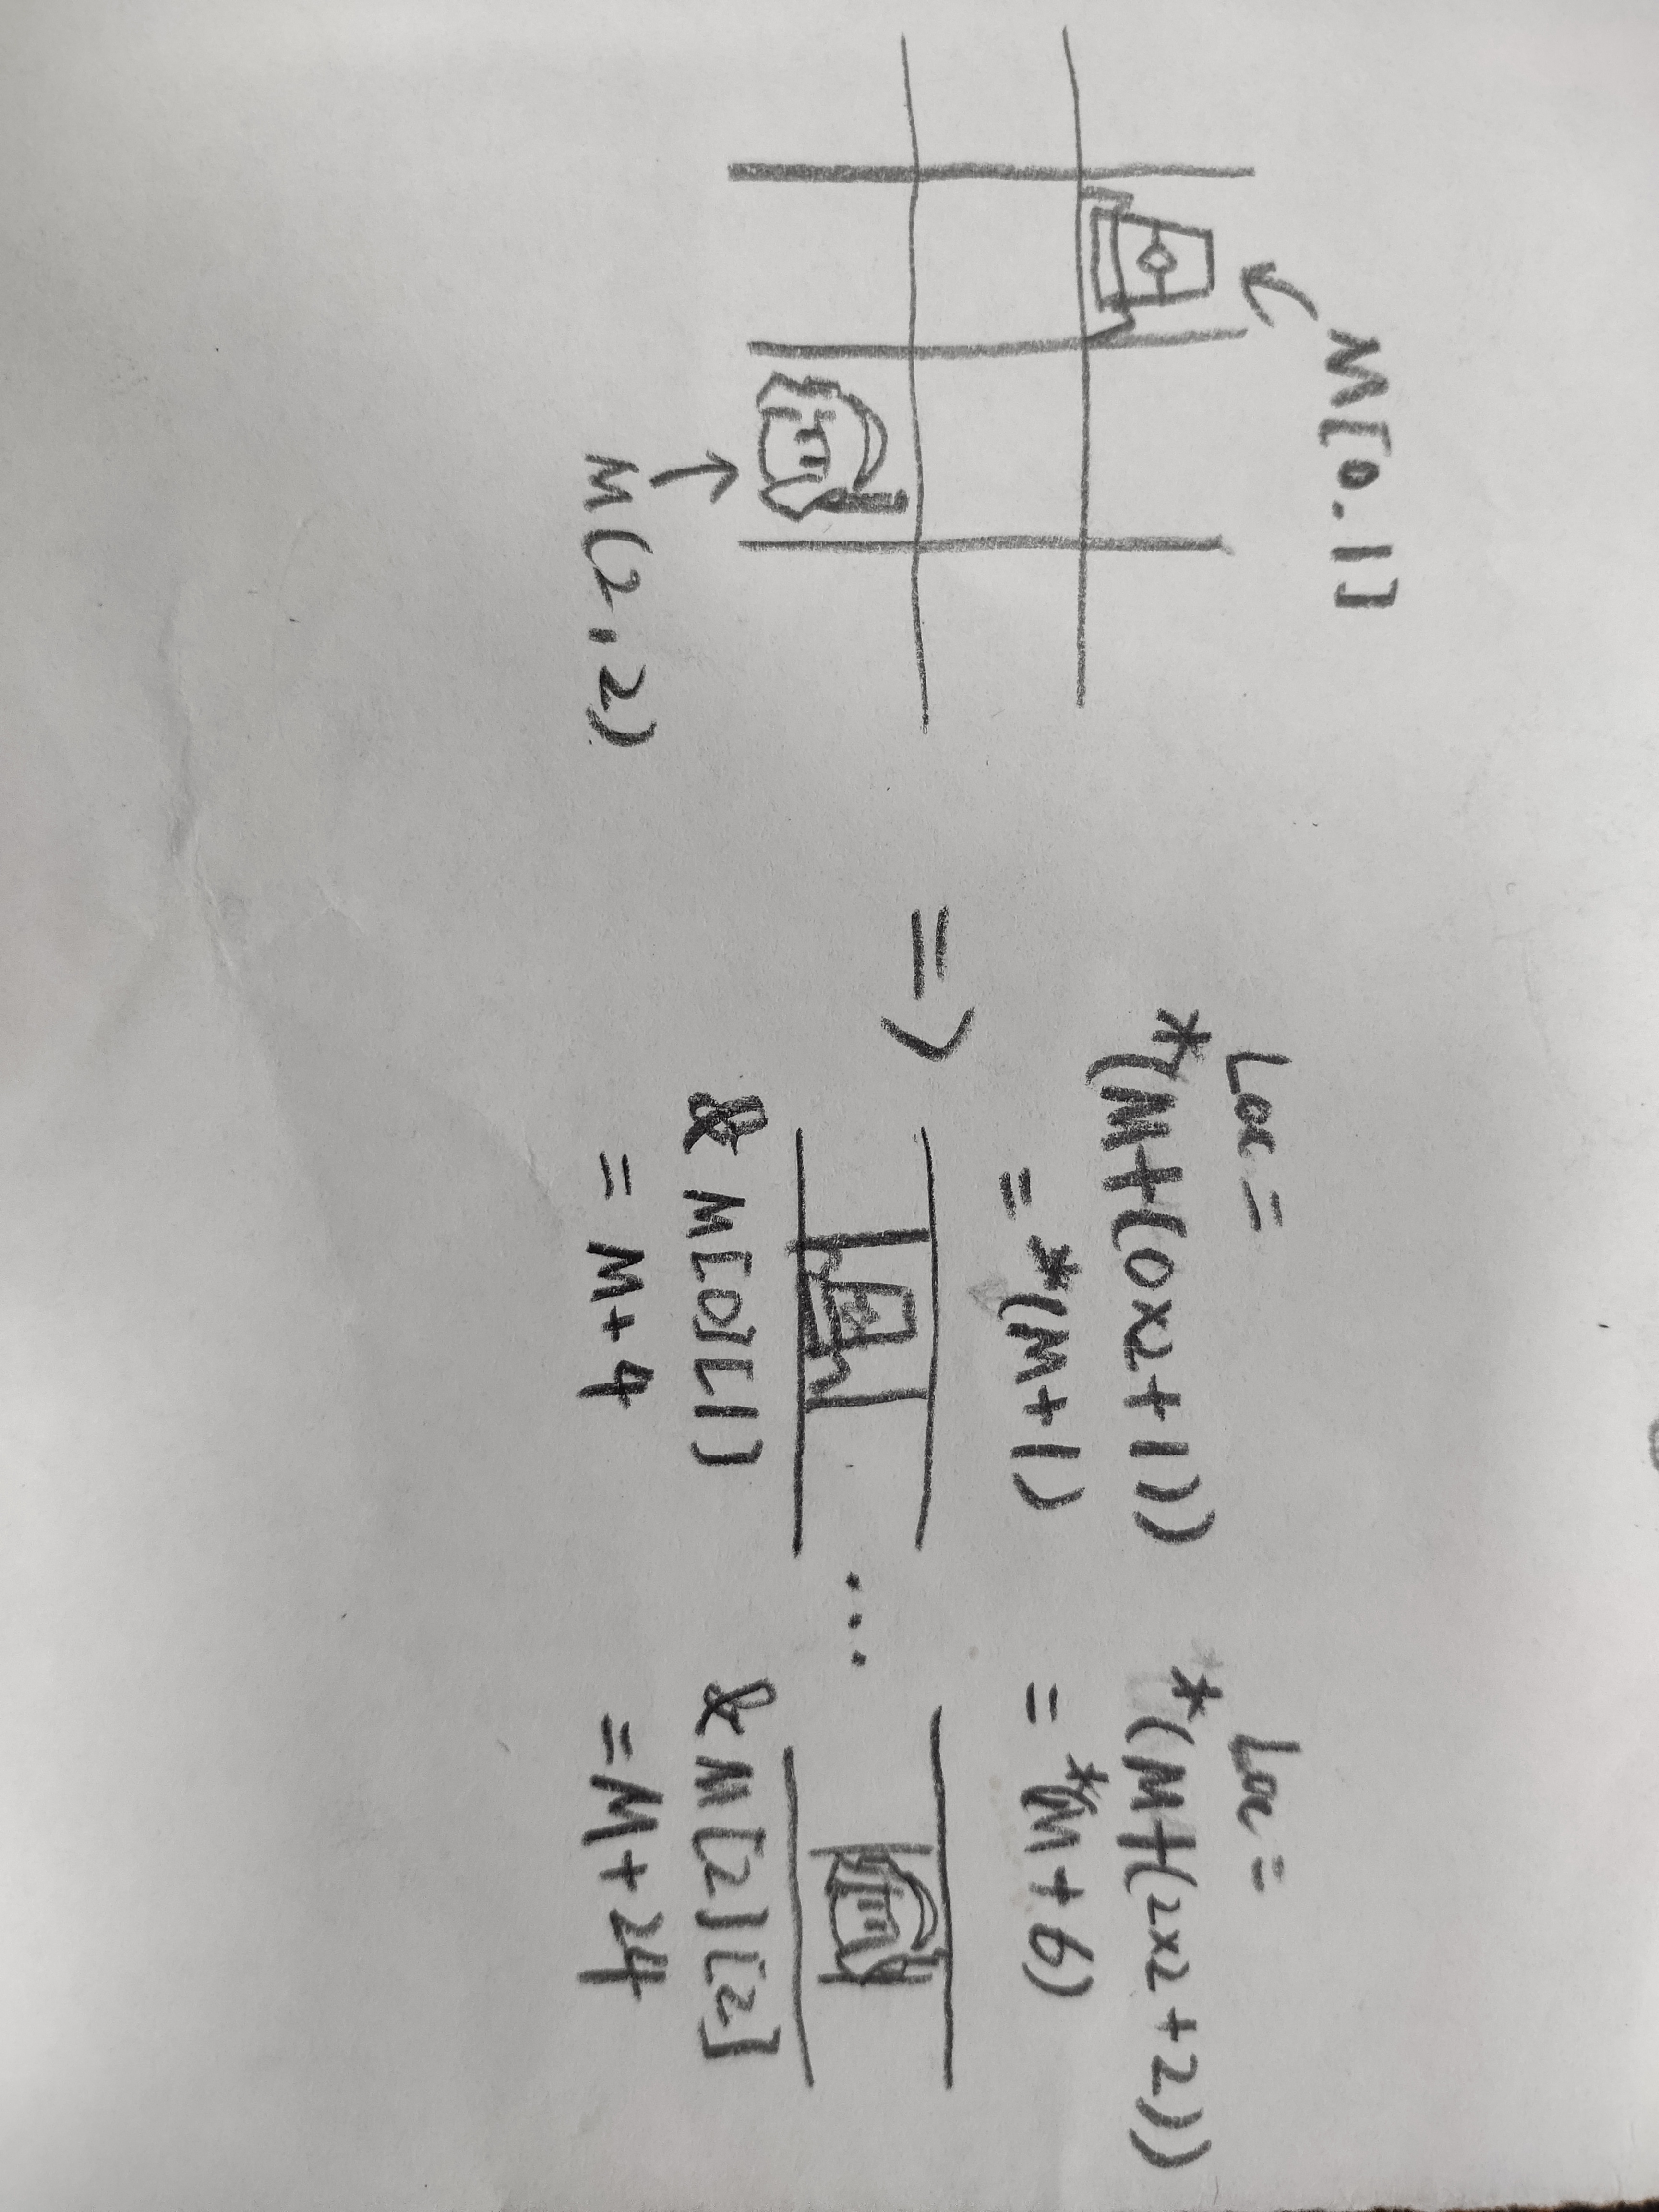 M[0.1]
M(2,2)
Loc =
*(M+(0×2+1))
= *(M+1)
=>
& M[0][1]
= M+4
...
Loc =
*(M+(2×2+2))
= *(M+6)
& M[2][2]
=M+24